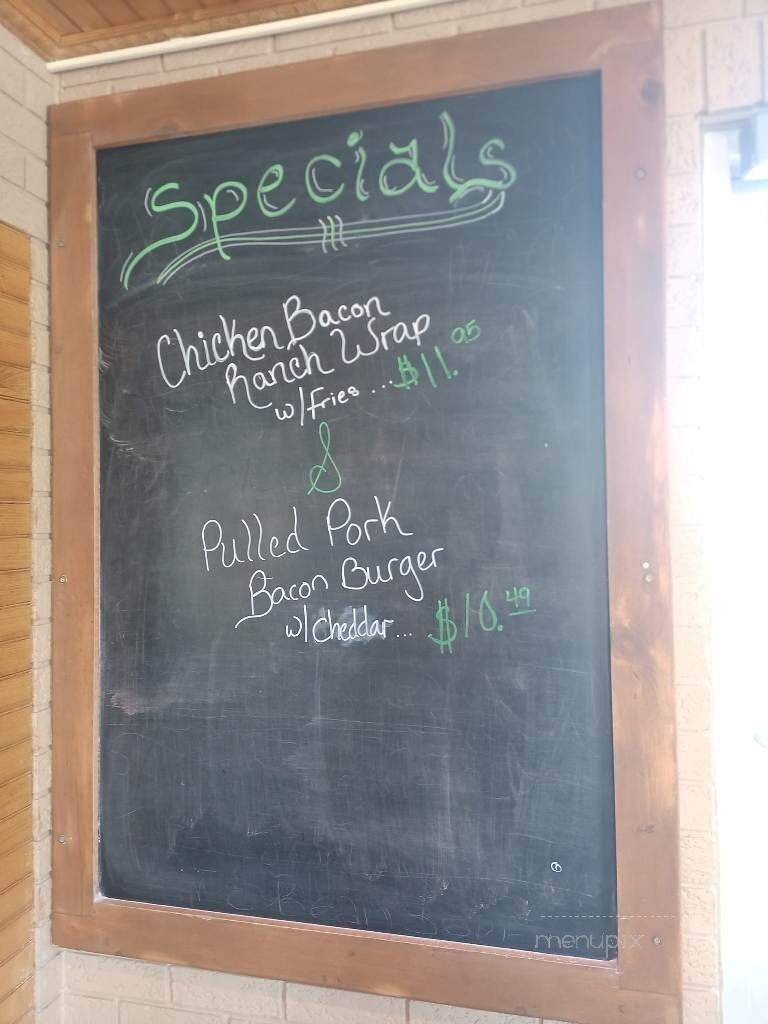 Specials
Chicken Bacon
Ranch Wrap
w/fries ... $11.95
&
Pulled Pork
Bacon Burger
w/cheddar... $10.49
menupix